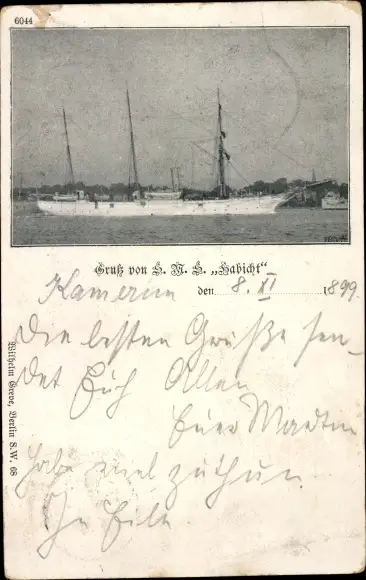 6044
Gruß von S. M. S. „Habicht“
Kamerun den 8. XI 1899
Die besten Grüße sen-
det Euch Allen
Euer Martin
Habe viel zu thun.
In Eile.
Wilhelm Greve, Berlin S.W. 68